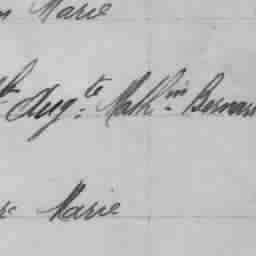 Marie
Aug.te Math.in Bernar
Marie